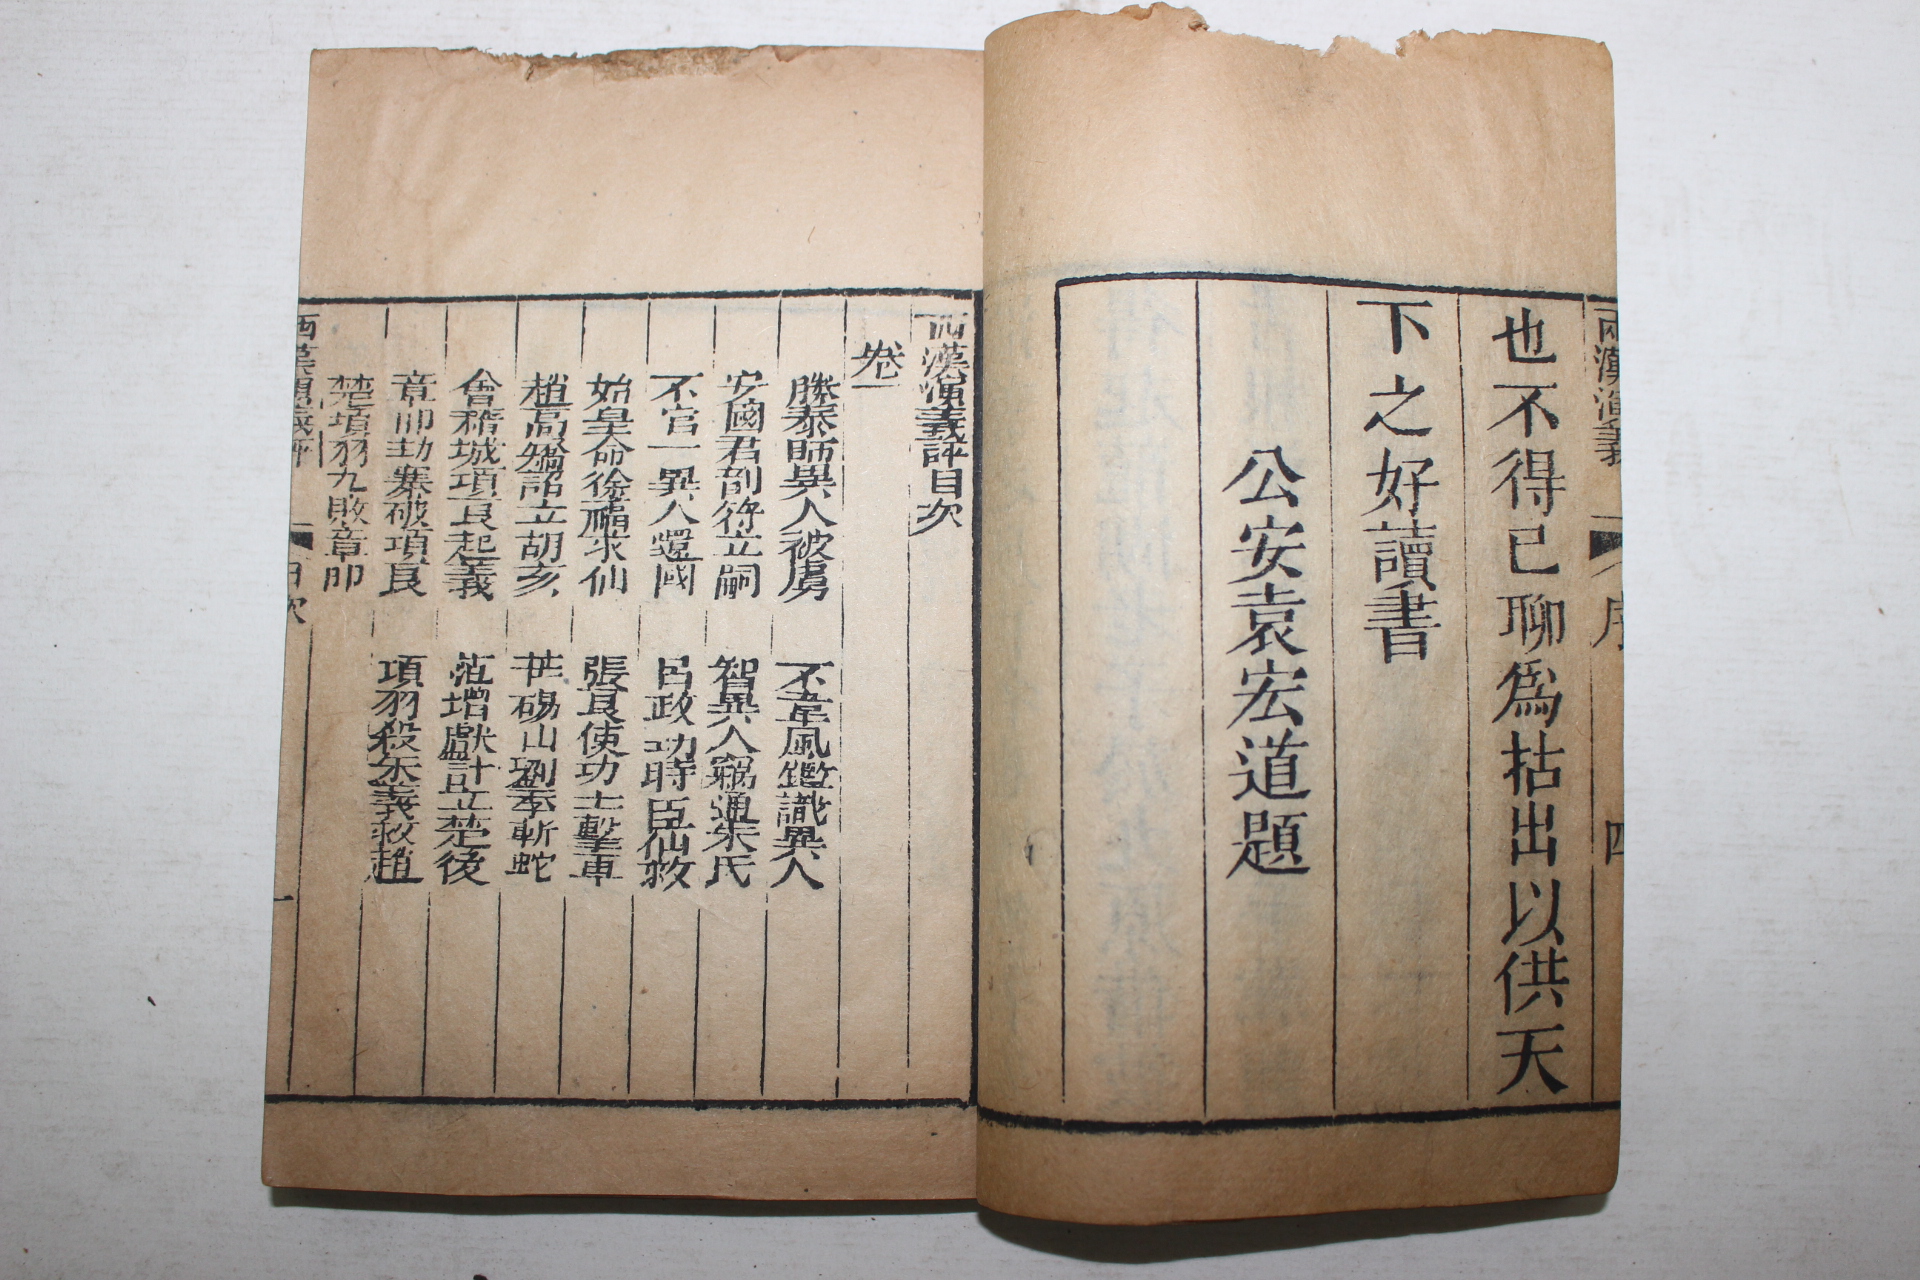 兩漢演義
序
四
也不得已聊爲拈出以供天
下之好讀書
公安袁宏道題
西漢演義評目次
卷一
勝秦師異人被虜
不韋風鑑識異人
安國君剖符立嗣
智異人竊通朱氏
不官一異人還國
呂政功時臣仙救
始皇命徐福求仙
張良使功士擊車
趙高矯詔立胡亥
芒碭山劉季斬蛇
會稽城項良起義
范增獻計立楚後
章邯劫寨破項良
項羽殺朱義救趙
楚項羽九敗章邯
西漢演義評
目次
一